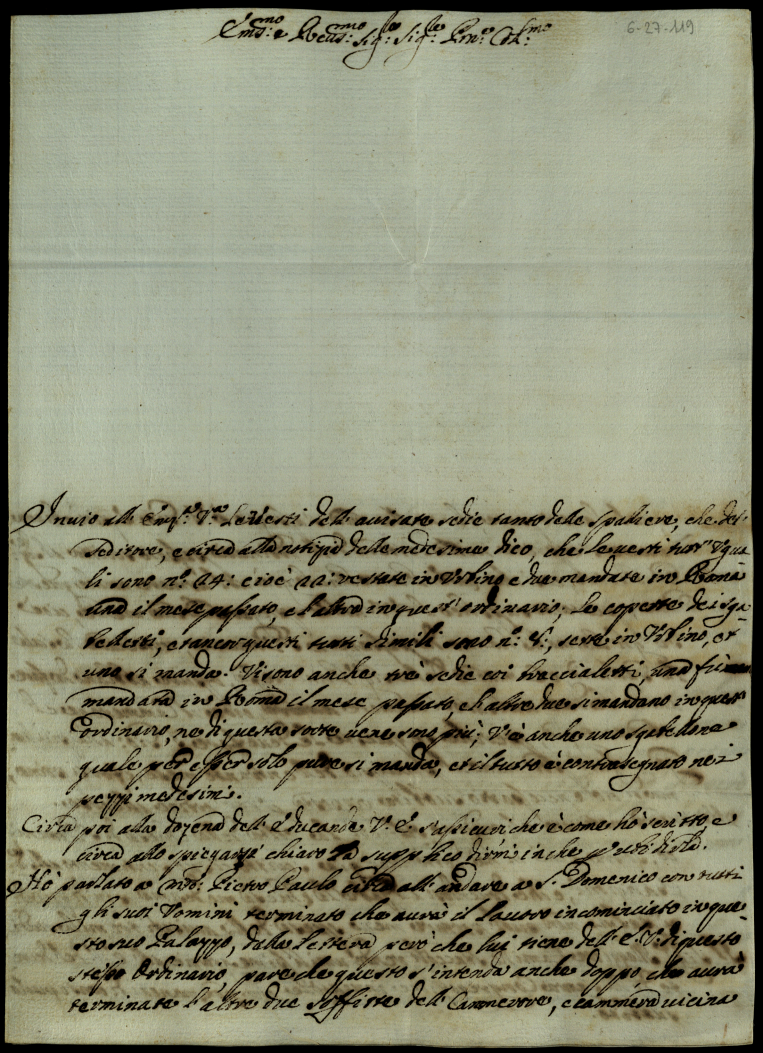 Em:mo e Reu:mo Sig:re Sig:re P̃rone Col:mo
6-27-119
Inuio all' Em:a V:a le Vesti dell' auuisate sedie tanto delle spalliere, che del
seditore, e circa alla notitia delle medesime dico, che le uesti tutt' Ugua
li sono n.o 24: cioè 22: restate in Vrbino e due mandate in Roma
una il mese passato, e l'altra in quest' ordinario; Le coperte de i sga
belletti, e sancor questi tutti simili sono n.o 8:, sette in Vrbino, et
uno si manda. Vi sono anche trè sedie coi braccialetti, una fù
mandata in Roma il mese passato, e l'altre due si mandano in quest'
ordinario, ne di questa sorte ue ne sono più; V'è anche uno sgabellone
quale per esser solo pure si manda, et il tutto è contrasegnato nei
pezzi medesimi.
Circa poi alla dozena dell' Educande V. E. s'assicuri che è come hò scritto, e
circa allo spiegarmi chiaro la supplico dirmi in che
Hò parlato a m:ro Pietro Paulo circa all' andare a S. Domenico con tutti
gli suoi Vomini terminato che aurà il Lauoro incominciato in que
sto suo Palazzo, dalla lettera però che lui tiene dell' E. V. di questo
stesso Ordinario, pare che questo s'intenda anche doppo, che aurà
terminate l'altre due soffitte dell' Camerone, e cammera uicina